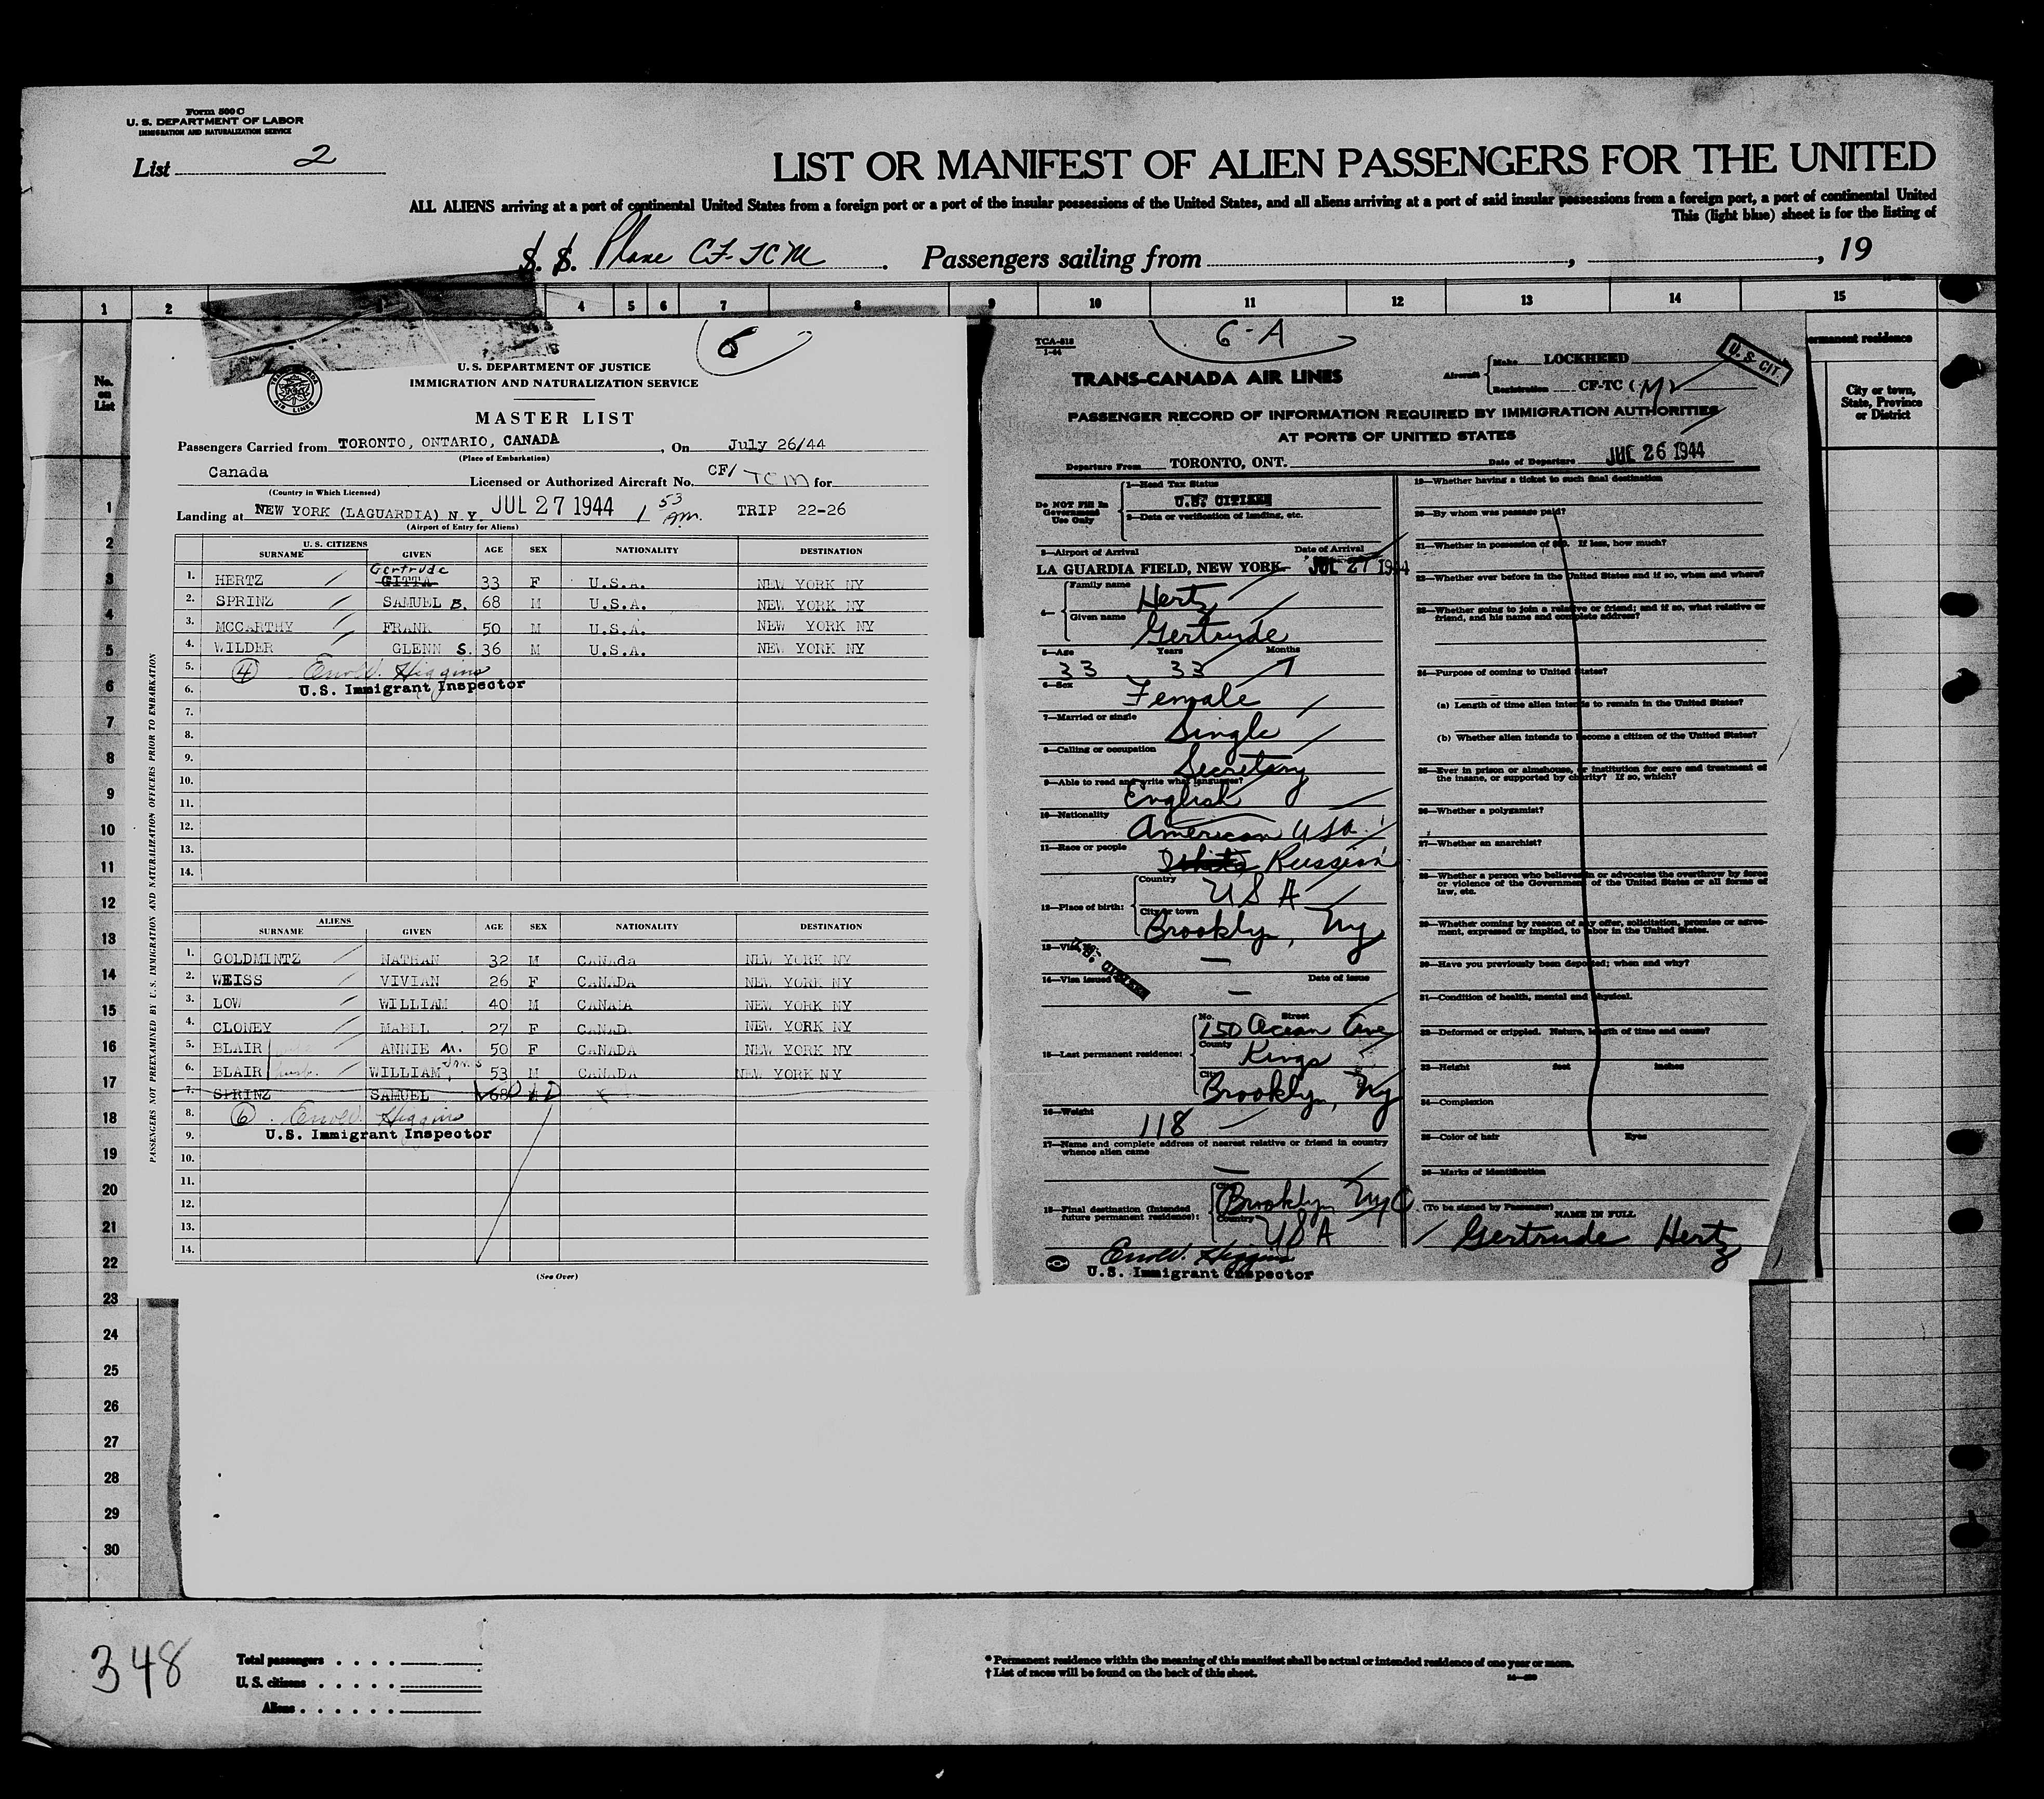 Form 500 C
U. S. DEPARTMENT OF LABOR
IMMIGRATION AND NATURALIZATION SERVICE
List 2
LIST OR MANIFEST OF ALIEN PASSENGERS FOR THE UNITED
ALL ALIENS arriving at a port of continental United States from a foreign port or a port of the insular possessions of the United States, and all aliens arriving at a port of said insular possessions from a foreign port, a port of continental United
This (light blue) sheet is for the listing of
S. S. Plane CF-TCM. Passengers sailing from , , 19
1 2 3 4 5 6 7 8 9 10 11 12 13 14 15
No. on List
ermanent residence
City or town, State, Province or District
1
2
3
4
5
6
7
8
9
10
11
12
13
14
15
16
17
18
19
20
21
22
23
24
25
26
27
28
29
30
PASSENGERS NOT PREEXAMINED BY U.S. IMMIGRATION AND NATURALIZATION OFFICERS PRIOR TO EMBARKATION
6
TRANS-CANADA AIR LINES
U. S. DEPARTMENT OF JUSTICE
IMMIGRATION AND NATURALIZATION SERVICE
MASTER LIST
Passengers Carried from TORONTO, ONTARIO, CANADA, On July 26/44
(Place of Embarkation)
Canada Licensed or Authorized Aircraft No. CF/ TCM for
(Country in Which Licensed)
Landing at NEW YORK (LAGUARDIA) N.Y. JUL 27 1944 1 53 am. TRIP 22-26
(Airport of Entry for Aliens)
U. S. CITIZENS
SURNAME GIVEN AGE SEX NATIONALITY DESTINATION
Gertrude
1. HERTZ GITTA 33 F U.S.A. NEW YORK NY
2. SPRINZ SAMUEL B. 68 M U.S.A. NEW YORK NY
3. MCCARTHY FRANK 50 M U.S.A. NEW YORK NY
4. WILDER GLENN S. 36 M U.S.A. NEW YORK NY
5. 4 Higgins
6. U.S. Immigrant Inspector
7.
8.
9.
10.
11.
12.
13.
14.
ALIENS
SURNAME GIVEN AGE SEX NATIONALITY DESTINATION
1. GOLDMINTZ NATHAN 32 M CANAda NEW YORK NY
2. WEISS VIVIAN 26 F CANADA NEW YORK NY
3. LOW WILLIAM 40 M CANADA NEW YORK NY
4. CLONEY MABEL 27 F CANAD. NEW YORK NY
5. BLAIR ANNIE M. 50 F CANADA NEW YORK NY
6. BLAIR husb. WILLIAM James 53 M CANADA NEW YORK NY
7. SPRINZ SAMUEL 68
8. 6 Higgins
9. U.S. Immigrant Inspector
10.
11.
12.
13.
14.
(See Over)
6-A
TCA-818
1-44
TRANS-CANADA AIR LINES
Aircraft Make LOCKHEED
Registration CF-TC (M)
U. S. CIT.
PASSENGER RECORD OF INFORMATION REQUIRED BY IMMIGRATION AUTHORITIES
AT PORTS OF UNITED STATES
Departure From TORONTO, ONT. Date of Departure JUL 26 1944
Do NOT Fill In Government Use Only
1—Head Tax Status
U.S. CITIZEN
2—Data or verification of landing, etc.
3—Airport of Arrival Date of Arrival
LA GUARDIA FIELD, NEW YORK JUL 27 1944
4— Family name Hertz
Given name Gertrude
5—Age Years Months
33 33 7
6—Sex Female
7—Married or single Single
8—Calling or occupation Secretary
9—Able to read and write what languages? English
10—Nationality American USA
11—Race or people White Russian
12—Place of birth: Country USA
City or town Brookly, Ny
13—Visa No. —
U.S. CITIZEN
14—Visa issued Date of issue
—
15—Last permanent residence: No. Street 150 Ocean Ave
County Kings
City Brooklyn, Ny
16—Weight 118
17—Name and complete address of nearest relative or friend in country whence alien came
—
18—Final destination (Intended future permanent residence): City Brooklyn NyC
Country USA
Higgins
U.S. Immigrant Inspector
19—Whether having a ticket to such final destination
20—By whom was passage paid?
21—Whether in possession of $50. If less, how much?
22—Whether ever before in the United States and if so, when and where?
23—Whether going to join a relative or friend; and if so, what relative or friend, and his name and complete address?
24—Purpose of coming to United States?
(a) Length of time alien intends to remain in the United States?
(b) Whether alien intends to become a citizen of the United States?
25—Ever in prison or almshouse, or institution for care and treatment of the insane, or supported by charity? If so, which?
26—Whether a polygamist?
27—Whether an anarchist?
28—Whether a person who believes in or advocates the overthrow by force or violence of the Government of the United States or all forms of law, etc.
29—Whether coming by reason of any offer, solicitation, promise or agreement, expressed or implied, to labor in the United States.
30—Have you previously been deported; when and why?
31—Condition of health, mental and physical.
32—Deformed or crippled. Nature, length of time and cause?
33—Height feet inches
34—Complexion
35—Color of hair Eyes
36—Marks of Identification
(To be signed by Passenger) NAME IN FULL
Gertrude Hertz
348
Total passengers
U. S. citizens
Aliens
* Permanent residence within the meaning of this manifest shall be actual or intended residence of one year or more.
† List of races will be found on the back of this sheet.